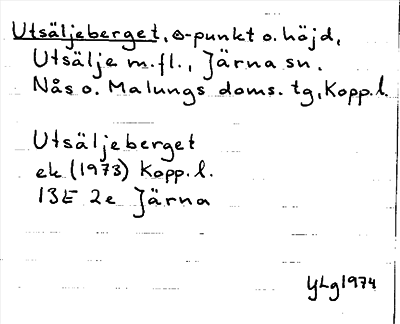 Utsäljeberget, ⊖-punkt o. höjd,
Utsälje m.fl., Järna sn.
Nås o. Malungs doms. tg, Kopp.l.
Utsäljeberget
ek (1973) Kopp.l.
13E 2e Järna
YLg 1974